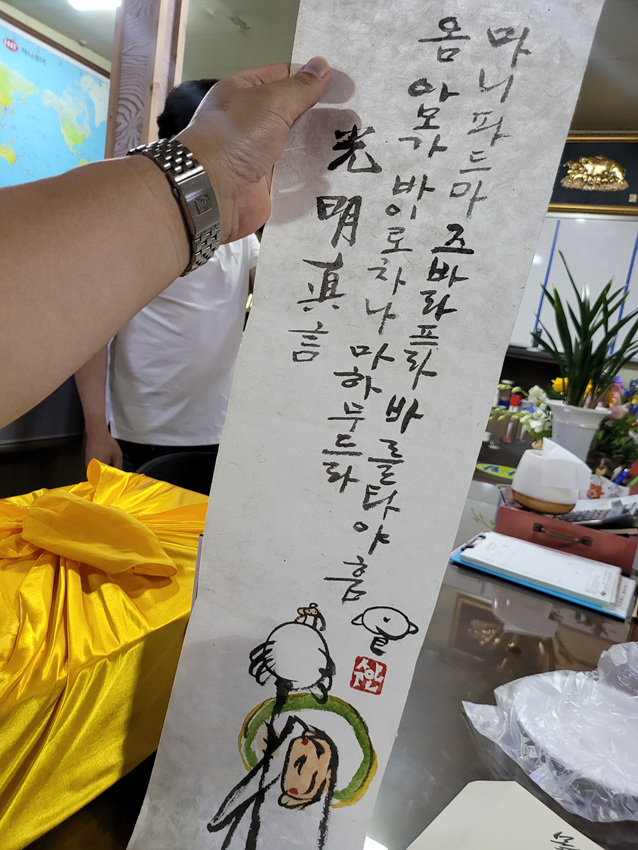 光明眞言
옴 아모가 바이로차나 마하무드라
마니파드마 즈바라프라 바를타야 훔
수안
하나투어